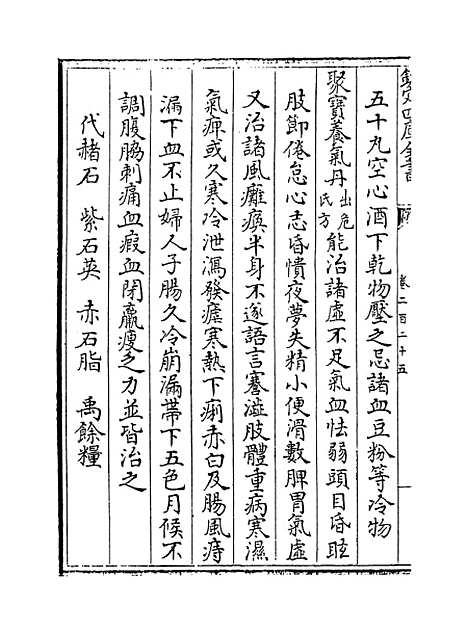 欽定四庫全書
卷二百二十五
五十丸空心酒下乾物壓之忌諸血豆粉等冷物
聚寶養氣丹出危氏方能治諸虛不足氣血怯弱頭目昏眩
肢節倦怠心志昏憒夜夢失精小便滑數脾胃氣虛
又治諸風癱瘓半身不遂語言蹇澁肢體重病寒濕
氣痹或久寒冷泄瀉發瘧寒熱下痢赤白及腸風痔
漏下血不止婦人子腸久冷崩漏帶下五色月候不
調腹脇刺痛血瘕血閉羸瘦乏力並皆治之
代赭石 紫石英 赤石脂 禹餘糧